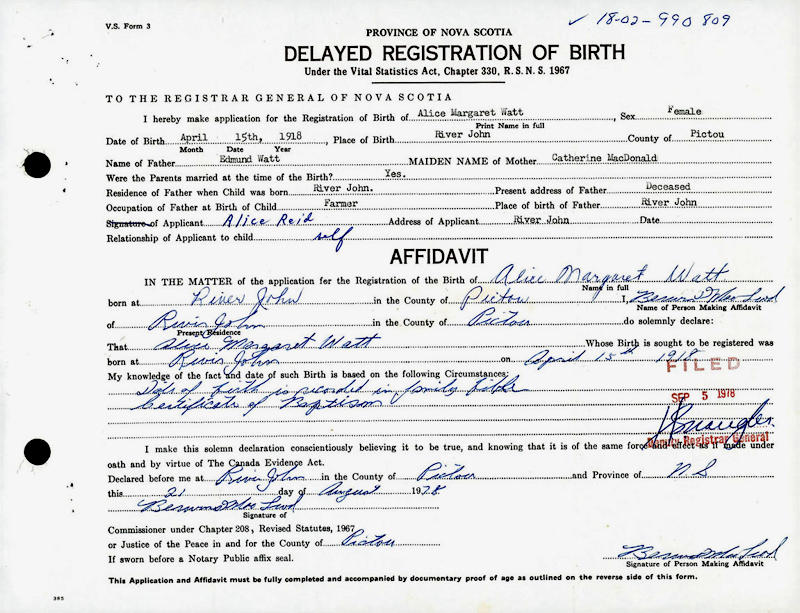 V.S. Form 3
✓ 18-02-990 809
PROVINCE OF NOVA SCOTIA
DELAYED REGISTRATION OF BIRTH
Under the Vital Statistics Act, Chapter 330, R.S.N.S. 1967
TO THE REGISTRAR GENERAL OF NOVA SCOTIA
I hereby make application for the Registration of Birth of Alice Margaret Watt, Sex Female
Print Name in full
Date of Birth April 15th, 1918, Place of Birth River John County of Pictou
Month Date Year
Name of Father Edmund Watt MAIDEN NAME of Mother Catherine MacDonald
Were the Parents married at the time of the Birth? Yes.
Residence of Father when Child was born River John. Present address of Father Deceased
Occupation of Father at Birth of Child Farmer Place of birth of Father River John
Signature of Applicant Alice Reid Address of Applicant River John Date
Relationship of Applicant to child self
AFFIDAVIT
IN THE MATTER of the application for the Registration of the Birth of Alice Margaret Watt
Name in full
born at River John in the County of Pictou I, MacLeod
Name of Person Making Affidavit
of River John in the County of Pictou do solemnly declare:
Present Residence
That Alice Margaret Watt Whose Birth is sought to be registered was
born at River John on April 15th 1918
My knowledge of the fact and date of such Birth is based on the following Circumstances:
FILED
Date of birth is recorded in family Bible
SEP 5 1978
Certificate of Baptism
Deputy Registrar General
I make this solemn declaration conscientiously believing it to be true, and knowing that it is of the same force and effect as if made under
oath and by virtue of The Canada Evidence Act.
Declared before me at River John in the County of Pictou and Province of N S
this 21 day of August 1978
MacLeod
Signature of
Commissioner under Chapter 208, Revised Statutes, 1967
or Justice of the Peace in and for the County of Pictou
If sworn before a Notary Public affix seal.
MacLeod
Signature of Person Making Affidavit
This Application and Affidavit must be fully completed and accompanied by documentary proof of age as outlined on the reverse side of this form.
385